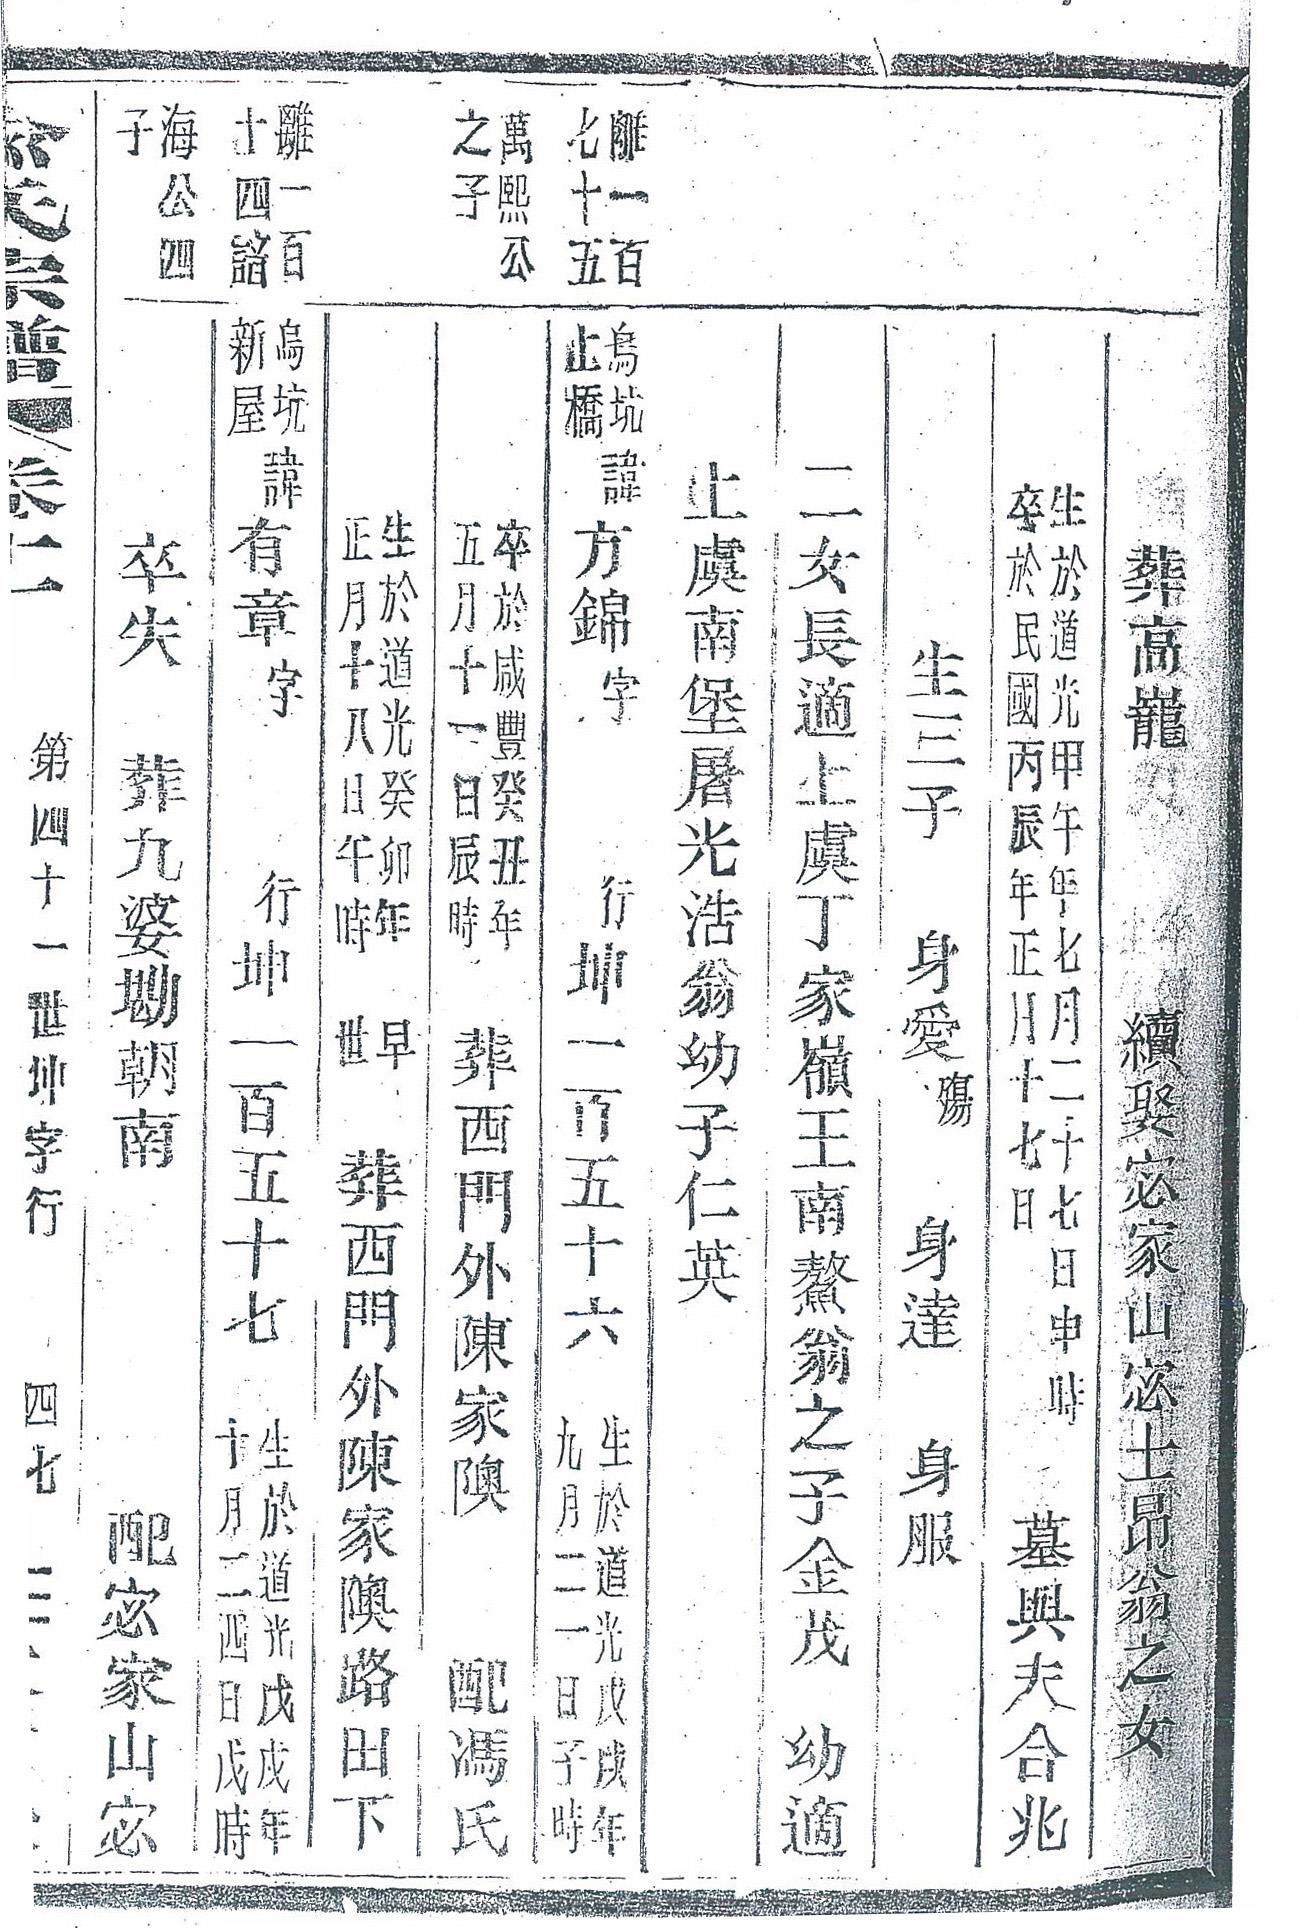 葬高巃　續娶宓家山宓士昂翁之女
生於道光甲午年七月二十七日申時
卒於民國丙辰年正月十七日
墓與夫合兆
生三子　身愛殤　身達　身服
二女長適上虞丁家嶺王南鰲翁之子金茂　幼適
上虞南堡屠光浩翁幼子仁英
離一百
七十五
烏坑
止橋
諱方錦字　行坤一百五十六
生於道光戊戌年
九月二一日子時
萬熙公
之子
卒於咸豐癸丑年
五月十一日辰時
葬西門外陳家隩　配馮氏
生於道光癸卯年
正月十八日午時
早
世
葬西門外陳家隩路田下
離一百
十四諮
烏坑
新屋
諱有章字　行坤一百五十七
生於道光戊戌年
十月二四日戊時
海公四
子
卒失　葬九婆塴朝南　配宓家山宓
氏宗譜　卷十一　第四十一世坤字行　四七